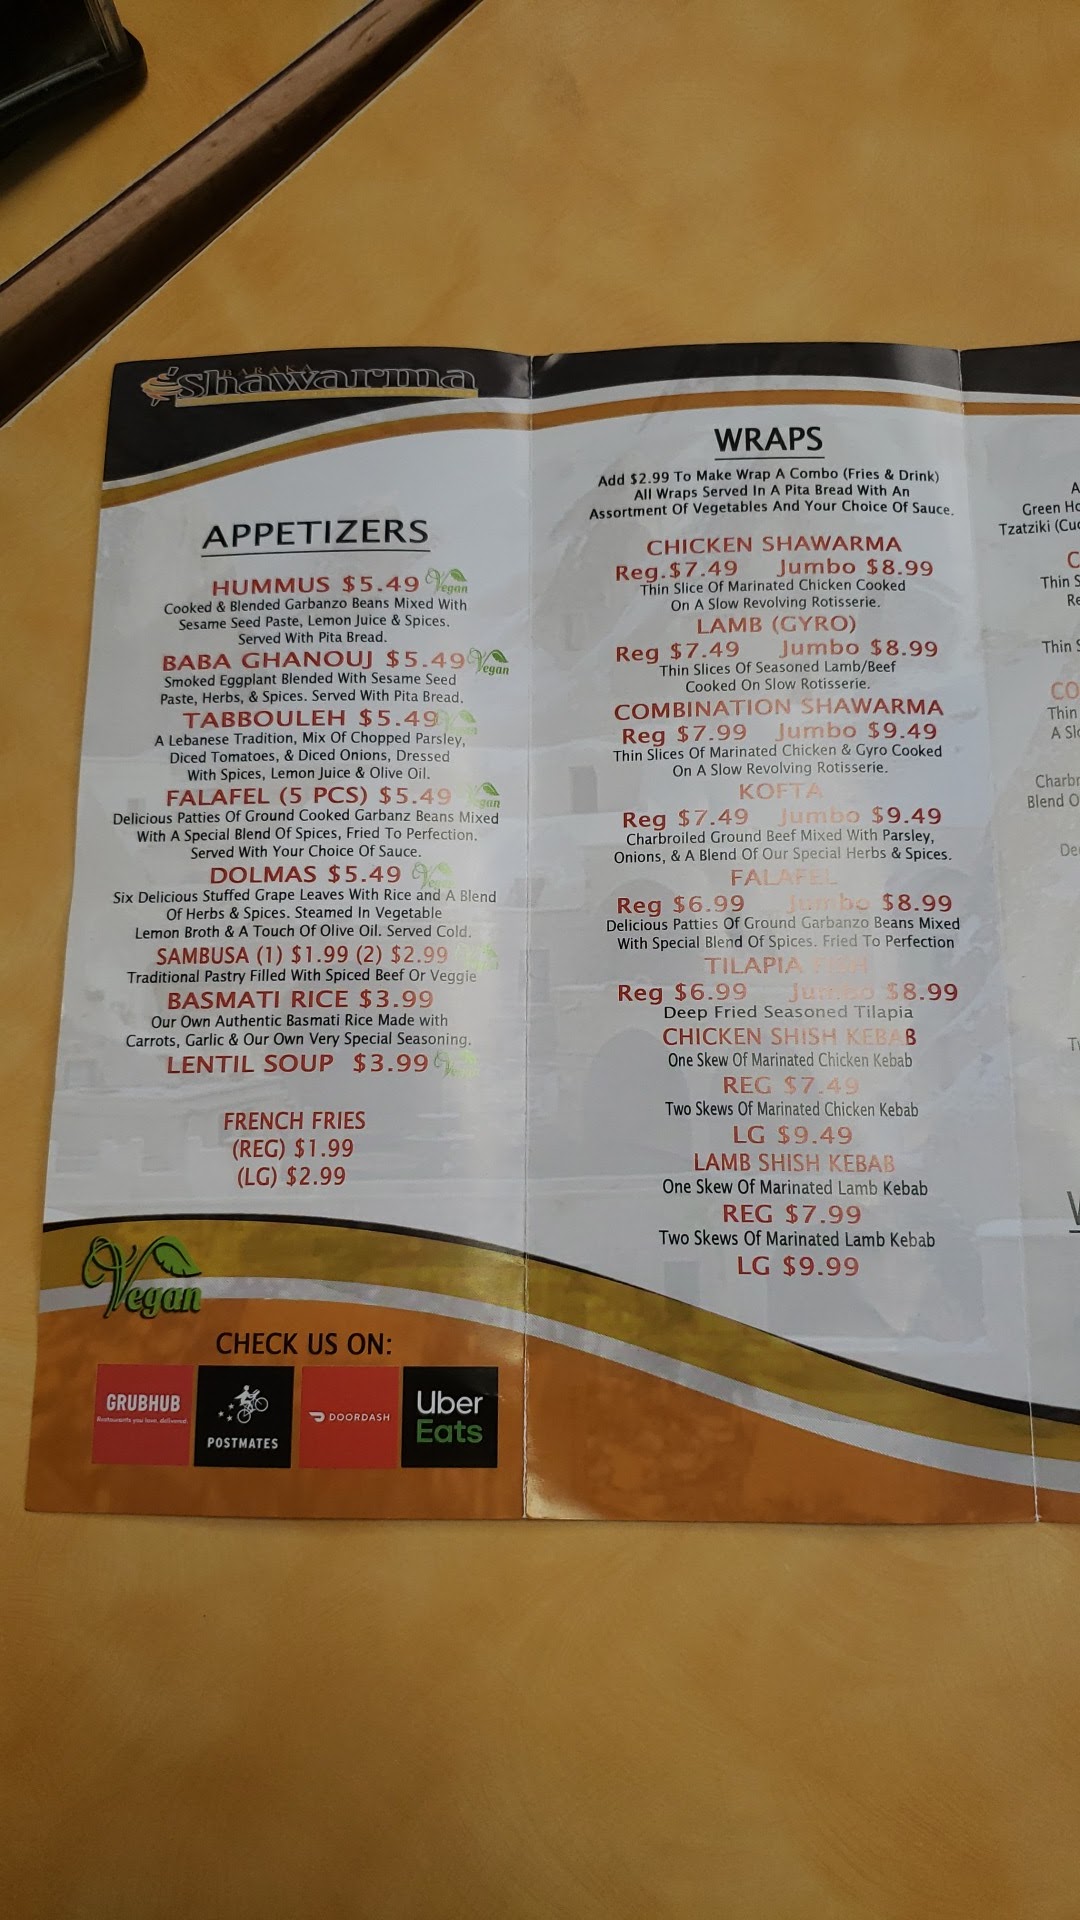 BARAKA
shawarma
APPETIZERS
HUMMUS $5.49 Vegan
Cooked & Blended Garbanzo Beans Mixed With
Sesame Seed Paste, Lemon Juice & Spices.
Served With Pita Bread.
BABA GHANOUJ $5.49 Vegan
Smoked Eggplant Blended With Sesame Seed
Paste, Herbs, & Spices. Served With Pita Bread.
TABBOULEH $5.49 Vegan
A Lebanese Tradition, Mix Of Chopped Parsley,
Diced Tomatoes, & Diced Onions, Dressed
With Spices, Lemon Juice & Olive Oil.
FALAFEL (5 PCS) $5.49 Vegan
Delicious Patties Of Ground Cooked Garbanz Beans Mixed
With A Special Blend Of Spices, Fried To Perfection.
Served With Your Choice Of Sauce.
DOLMAS $5.49 Vegan
Six Delicious Stuffed Grape Leaves With Rice and A Blend
Of Herbs & Spices. Steamed In Vegetable
Lemon Broth & A Touch Of Olive Oil. Served Cold.
SAMBUSA (1) $1.99 (2) $2.99
Traditional Pastry Filled With Spiced Beef Or Veggie
BASMATI RICE $3.99
Our Own Authentic Basmati Rice Made with
Carrots, Garlic & Our Own Very Special Seasoning.
LENTIL SOUP $3.99 Vegan
FRENCH FRIES
(REG) $1.99
(LG) $2.99
Vegan
CHECK US ON:
GRUBHUB
Restaurants you love, delivered.
POSTMATES
DOORDASH
Uber
Eats
WRAPS
Add $2.99 To Make Wrap A Combo (Fries & Drink)
All Wraps Served In A Pita Bread With An
Assortment Of Vegetables And Your Choice Of Sauce.
CHICKEN SHAWARMA
Reg.$7.49 Jumbo $8.99
Thin Slice Of Marinated Chicken Cooked
On A Slow Revolving Rotisserie.
LAMB (GYRO)
Reg $7.49 Jumbo $8.99
Thin Slices Of Seasoned Lamb/Beef
Cooked On Slow Rotisserie.
COMBINATION SHAWARMA
Reg $7.99 Jumbo $9.49
Thin Slices Of Marinated Chicken & Gyro Cooked
On A Slow Revolving Rotisserie.
KOFTA
Reg $7.49 Jumbo $9.49
Charbroiled Ground Beef Mixed With Parsley,
Onions, & A Blend Of Our Special Herbs & Spices.
FALAFEL
Reg $6.99 Jumbo $8.99
Delicious Patties Of Ground Garbanzo Beans Mixed
With Special Blend Of Spices. Fried To Perfection
TILAPIA FISH
Reg $6.99 Jumbo $8.99
Deep Fried Seasoned Tilapia
CHICKEN SHISH KEBAB
One Skew Of Marinated Chicken Kebab
REG $7.49
Two Skews Of Marinated Chicken Kebab
LG $9.49
LAMB SHISH KEBAB
One Skew Of Marinated Lamb Kebab
REG $7.99
Two Skews Of Marinated Lamb Kebab
LG $9.99
Green
Tzatziki
Thin
Thin
Thin
A
Blend